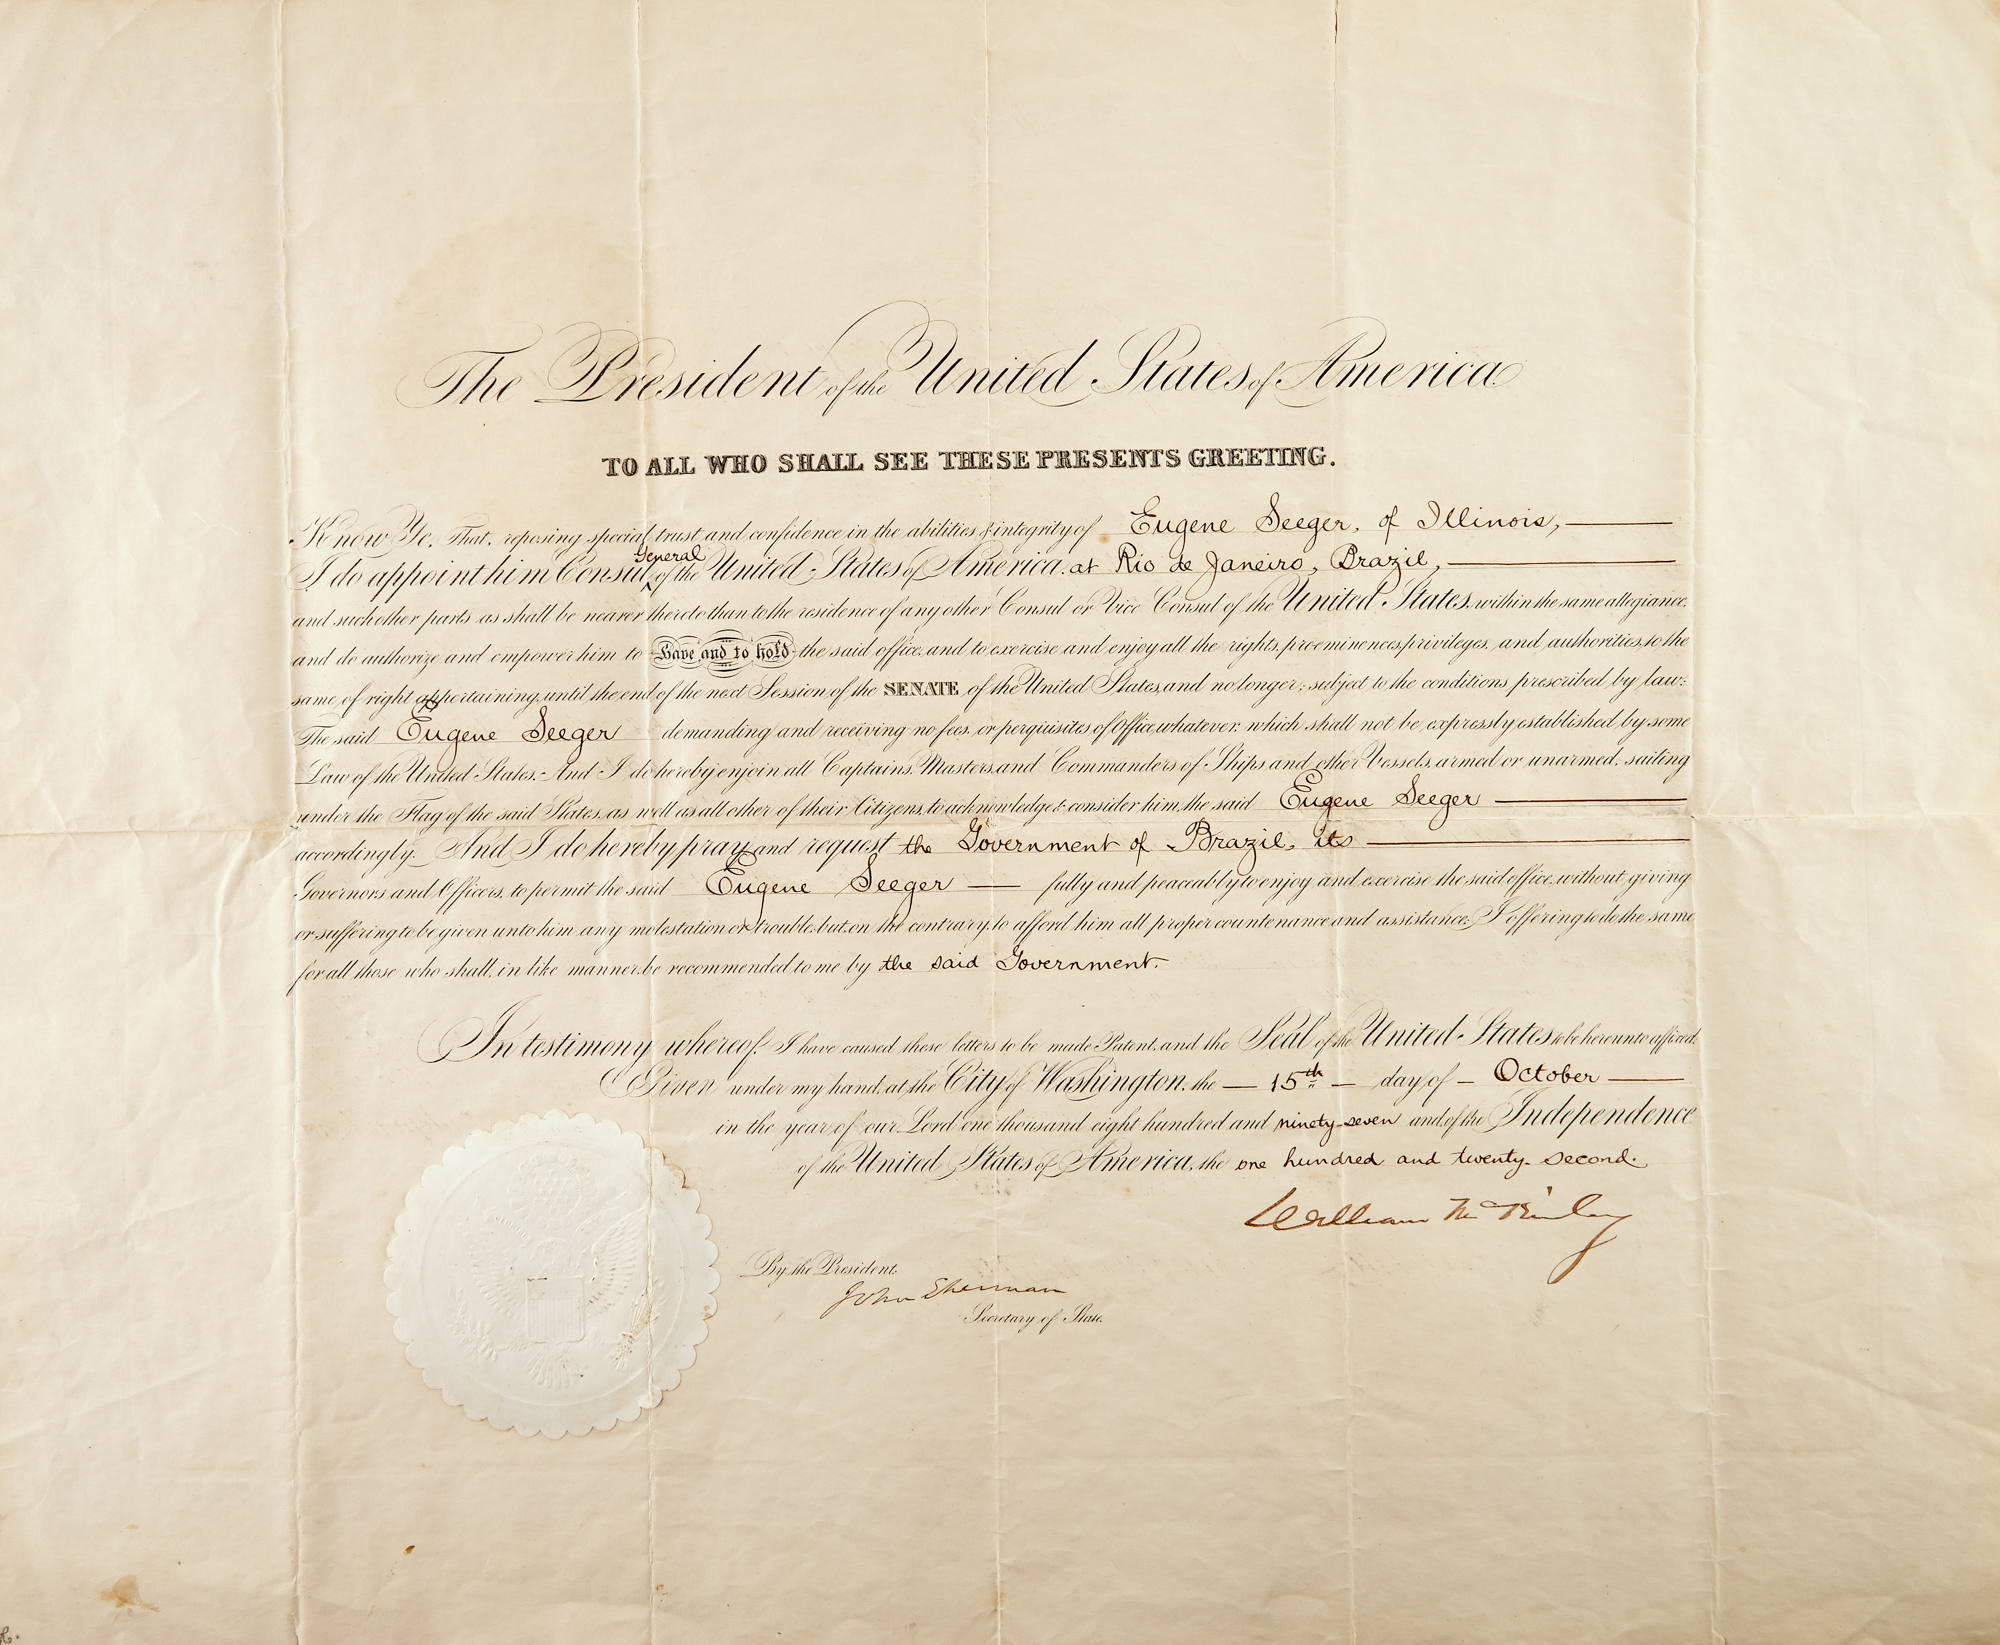 The President of the United States of America.
TO ALL WHO SHALL SEE THESE PRESENTS GREETING.
Know Ye, That, reposing special trust and confidence in the abilities & integrity of Eugene Seeger, of Illinois,
I do appoint him Consul General of the United States of America, at Rio de Janeiro, Brazil,
and such other parts as shall be nearer thereto than to the residence of any other Consul or Vice Consul of the United States, within the same allegiance,
and do authorize and empower him to Have and to hold the said office, and to exercise and enjoy all the rights, preeminences, privileges, and authorities, to the
same, of right appertaining, until the end of the next Session of the SENATE of the United States, and no longer; subject to the conditions prescribed by law:
The said Eugene Seeger demanding and receiving no fees, or perquisites of Office, whatever, which shall not be expressly established, by some
Law of the United States. And I do hereby enjoin all Captains, Masters, and Commanders of Ships and other Vessels, armed or unarmed, sailing
under the Flag of the said States, as well as all other of their Citizens, to acknowledge & consider him, the said Eugene Seeger
accordingly. And I do hereby pray and request the Government of Brazil, its
Governors and Officers, to permit the said Eugene Seeger fully and peaceably to enjoy and exercise the said office, without giving
or suffering to be given unto him, any molestation or trouble, but on the contrary, to afford him all proper countenance and assistance; I offering to do the same
for all those who shall, in like manner, be recommended to me by the said Government.
In testimony whereof, I have caused these letters to be made Patent, and the Seal of the United States to be hereunto affixed.
Given under my hand, at the City of Washington, the 15th day of October
in the year of our Lord one thousand eight hundred and ninety-seven and of the Independence
of the United States of America, the one hundred and twenty-second.
William McKinley
By the President:
John Sherman
Secretary of State.